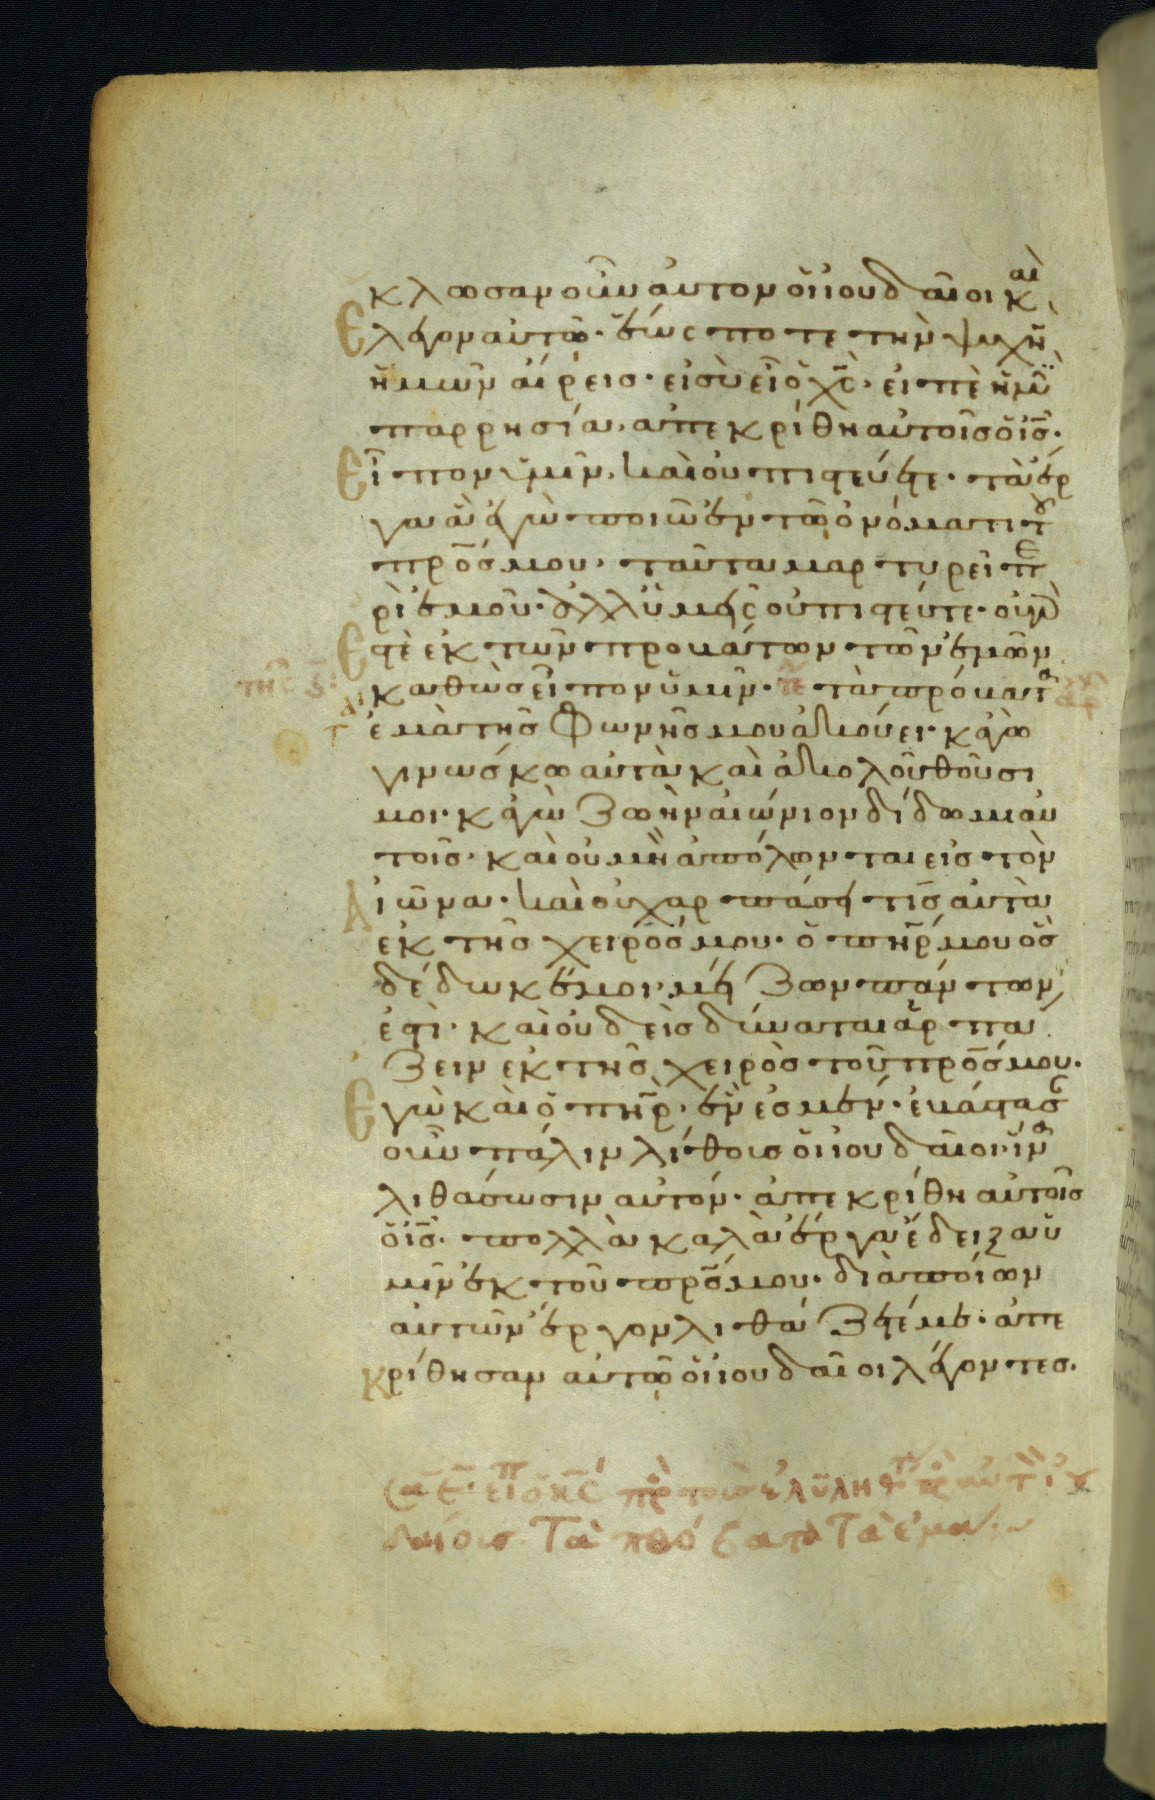 κλωσαν οὖν αὐτὸν οἱ ἰουδαῖοι καὶ
ἔλεγον αὐτῶ· ἕως πότε τὴν ψυχὴν
ἡμῶν αἴρεις· εἰ σὺ εἶ ὁ χς· εἰπὲ ἡμῖν
παρρησία· ἀπεκρίθη αὐτοῖς ὁ ις·
Εἶπον ὑμῖν, καὶ οὐ πιστεύετε· τὰ ἔρ
γα ἃ ἐγὼ ποιῶ ἐν τῶ ὀνόματι τοῦ
πρς μου, ταῦτα μαρτυρεῖ πε
ρὶ ἐμοῦ· ἀλλ ὑμεῖς οὐ πιστεύετε· οὐ γάρ
Ἐστὲ ἐκ τῶν προβάτων τῶν ἐμῶν
καθὼς εἶπον ὑμῖν· τὰ πρόβατα
τὰ ἐμὰ τῆς φωνῆς μου ἀκούει· κἀγὼ
γινώσκω αὐτὰ καὶ ἀκολουθοῦσι
μοι· κἀγὼ ζωὴν αἰώνιον δίδωμι αὐ
τοῖς· καὶ οὐ μὴ ἀπόλωνται εἰς τὸν
Αἰῶνα· καὶ οὐχ ἁρπάσει τὶς αὐτὰ
ἐκ τῆς χειρός μου· ὁ πηρ μου ὃς
δέδωκέ μοι· μείζων πάντων
ἐστὶ· καὶ οὐδεὶς δύναται ἁρπά
ζειν ἐκ τῆς χειρὸς τοῦ πρς μου·
Ἐγὼ καὶ ὁ πηρ· ἕν ἐσμέν· ἐβάστασαν
οὖν πάλιν λίθους οἱ ἰουδαῖοι· ἵνα
λιθάσωσιν αὐτόν· ἀπεκρίθη αὐτοῖς
ὁ ις· πολλὰ καλὰ ἔργα ἔδειξα ὑ
μῖν ἐκ τοῦ πρς μου· διὰ ποῖον
αὐτῶν ἔργον λιθάζετέ με· ἀπε
Κρίθησαν αὐτῶ οἱ ἰουδαῖοι λέγοντες·
εἶπεν ὁ κς πρὸς τοὺς ἐληλυθότας πρὸς αὐτὸν ἰου
δαίους. Τὰ πρόβατα Τὰ ἐμα